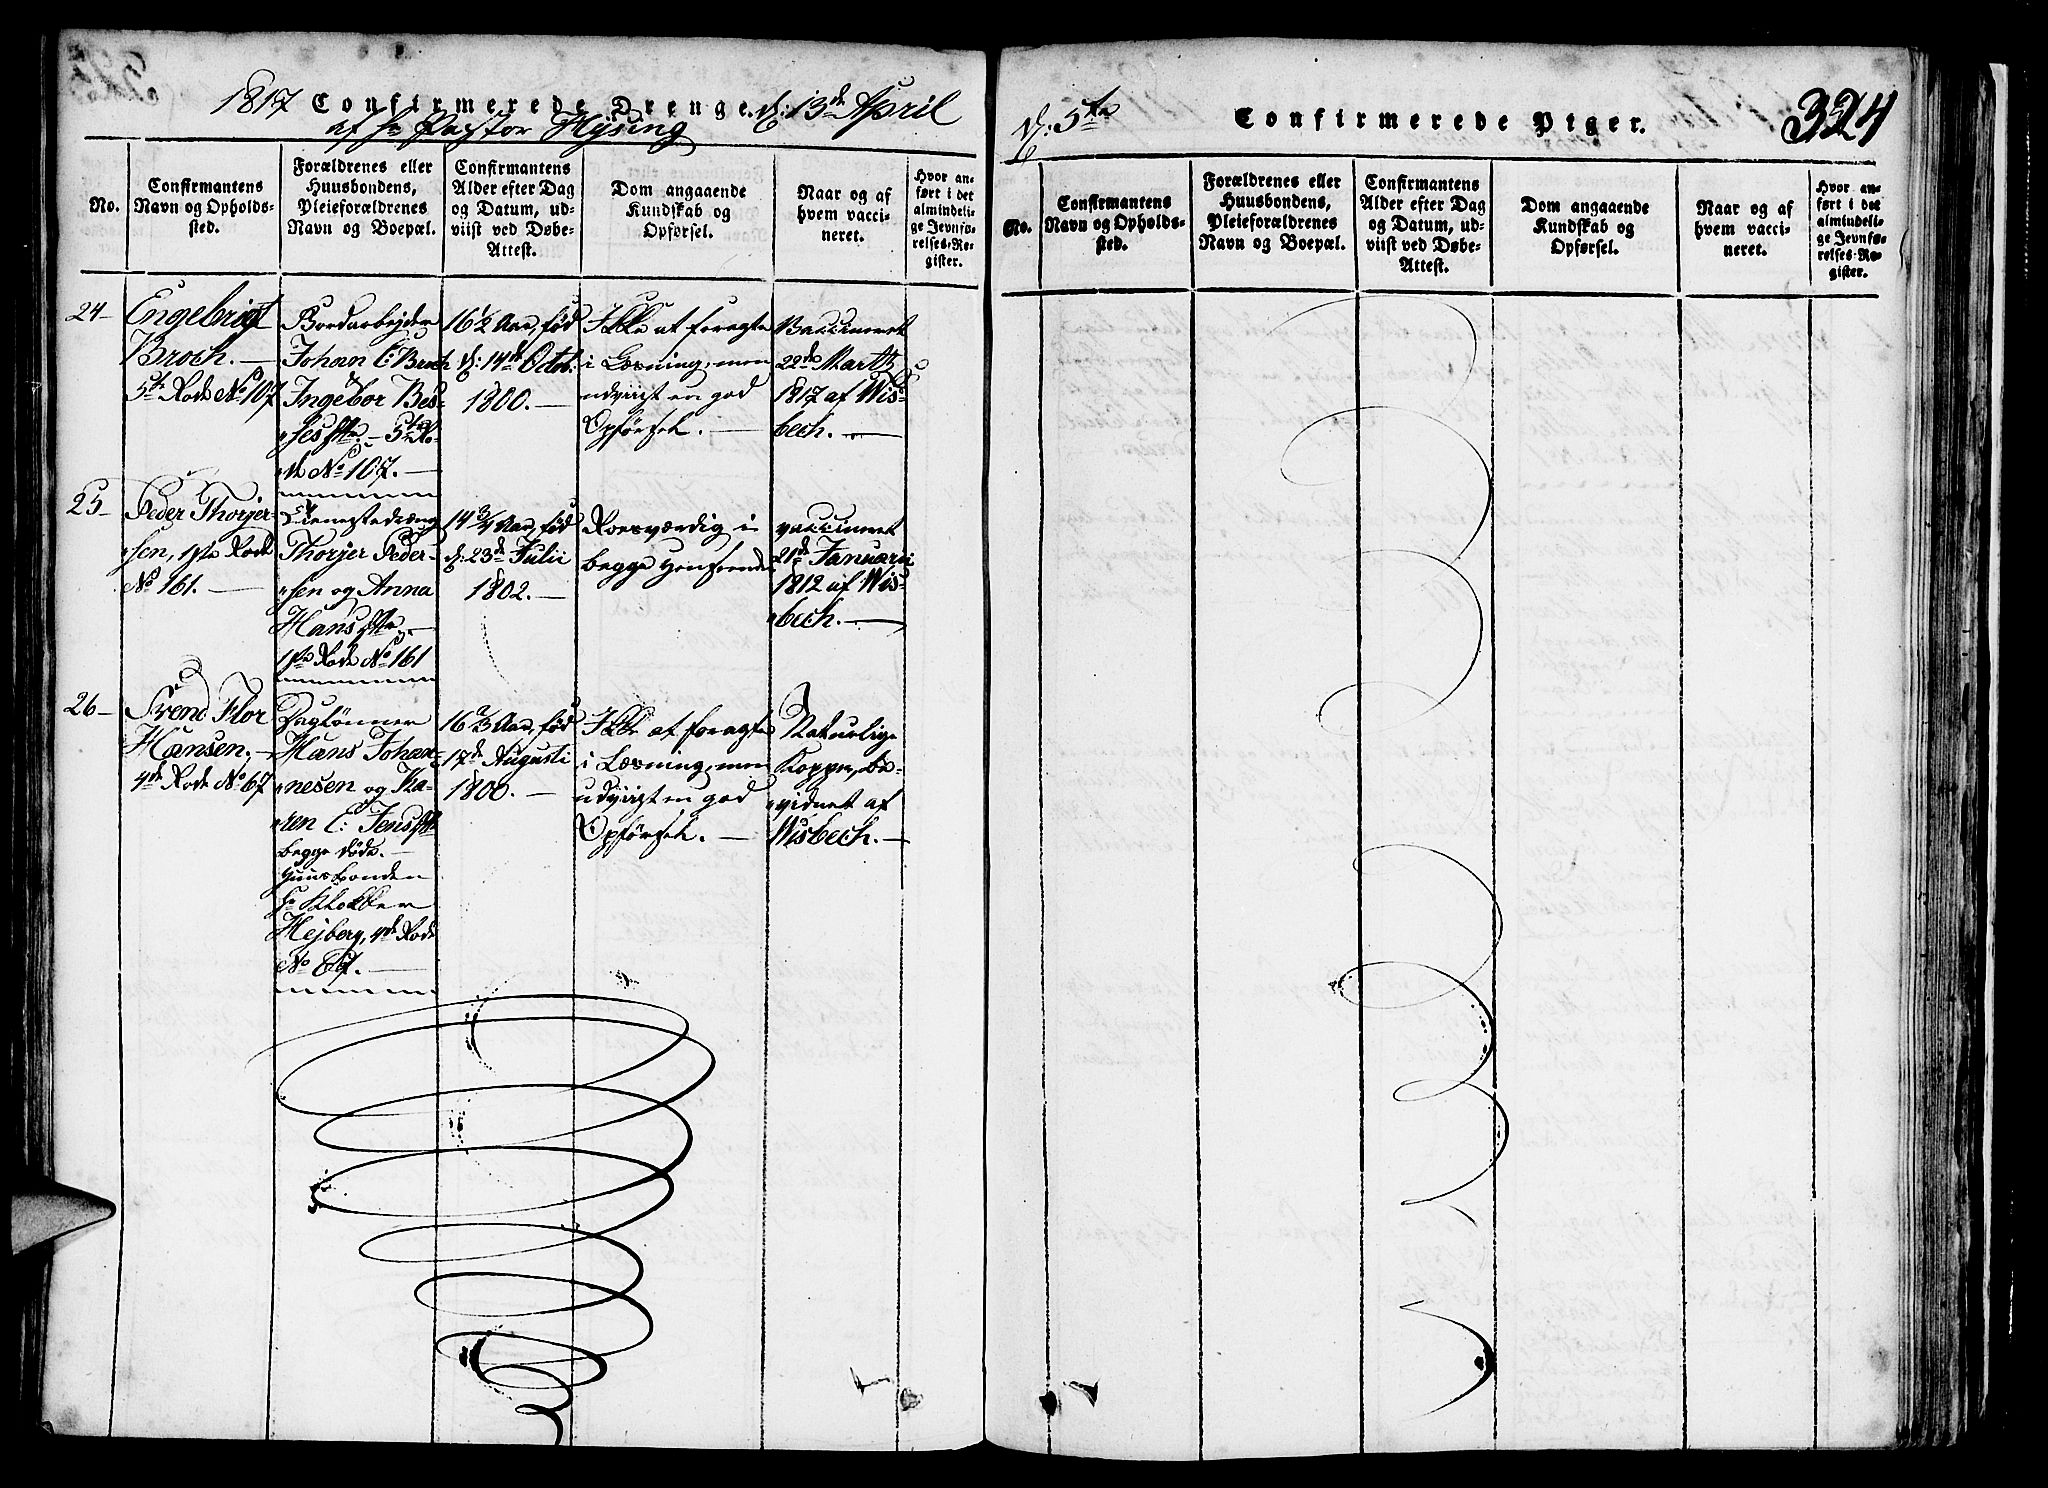 1817 Confirmerede Drenge. d: 13de April
af Hr Pastor Hysing
No.
Confirmantens
Navn og Opholds-
sted.
Forældrenes eller
Huusbondens,
Pleieforældrenes
Navn og Boepæl.
Confirmantens
Alder efter Dag
og Datum, ud-
viist ved Døbe-
Attest.
Dom angaaende
Kundskab og
Opførsel.
Naar og af
hvem vacci-
neret.
Hvor an-
ført i det
almindeli-
ge Jevnfø-
relses-Re-
gister.
24-
Engebrigt
Broch. -
5te Rode No 107
Bordarbejder
Johan C: Broch
Ingebor Bes-
"ses
5te Ro-
"de No 107. -
16 1/2 Aar, fød
d: 14de Octob:
1800. -
Ikke at foragte
i Læsning, men
udviist en god
Opførsel. -
Vaccineret
22de Martz
1817 af Wis-
bech. -
25-
Peder Thorjer-
"sen, 1ste Rode
No 161. -
Tienestedreng
Thorjer Peder-
"sen og Anna
Hans
1ste Rode No 161
14 3/4 Aar, fød
d: 23de Julii
1802. -
Roesværdig i
begge Henseender
vaccineret
21de Januarii
1812 af Wis-
"bech. -
26-
Svend Flor
Hansen. -
4de Rode No 67
Daglønner
Hans Johan-
"nesen og Ka-
"ren C: Jens
begge døde. -
Huusbonden
Hr Klokker
Hejberg, 4de Rode
No 67. -
16 2/3 Aar, fød
17de Augusti
1800. -
Ikke at foragte
i Læsning, men
udviist en god
Opførsel. -
Naturlige
Kopper, be-
"vidnet af
Wisbech. -
d: 5te
Confirmerede Piger.
324
No.
Confirmantens
Navn og Opholds-
sted.
Forældrenes eller
Huusbondens,
Pleieforældrenes
Navn og Boepæl.
Confirmantens
Alder efter Dag
og Datum, ud-
viist ved Døbe-
Attest.
Dom angaaende
Kundskab og
Opførsel.
Naar og af
hvem vacci-
neret.
Hvor an-
ført i det
almindeli-
ge Jevnfø-
relses-Re-
gister.